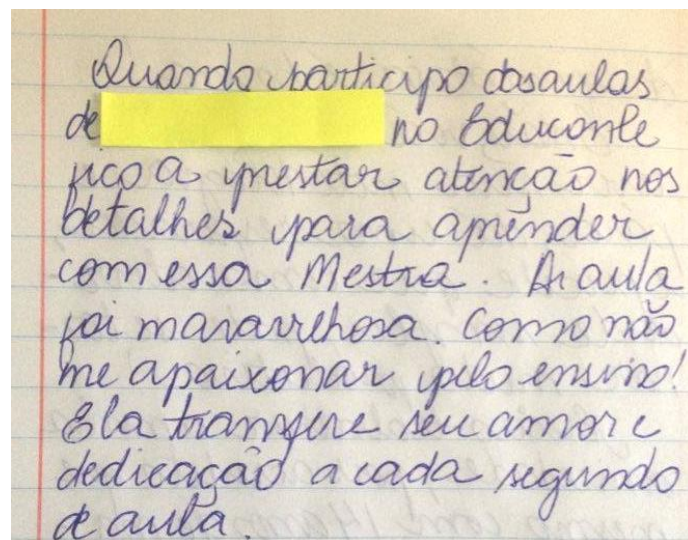 Quando participo das aulas
de no Educonle
fico a prestar atenção nos
detalhes para aprender
com essa Mestra. A aula
foi maravilhosa. Como não
me apaixonar pelo ensino!
Ela transfere seu amor e
dedicação a cada segundo
de aula.